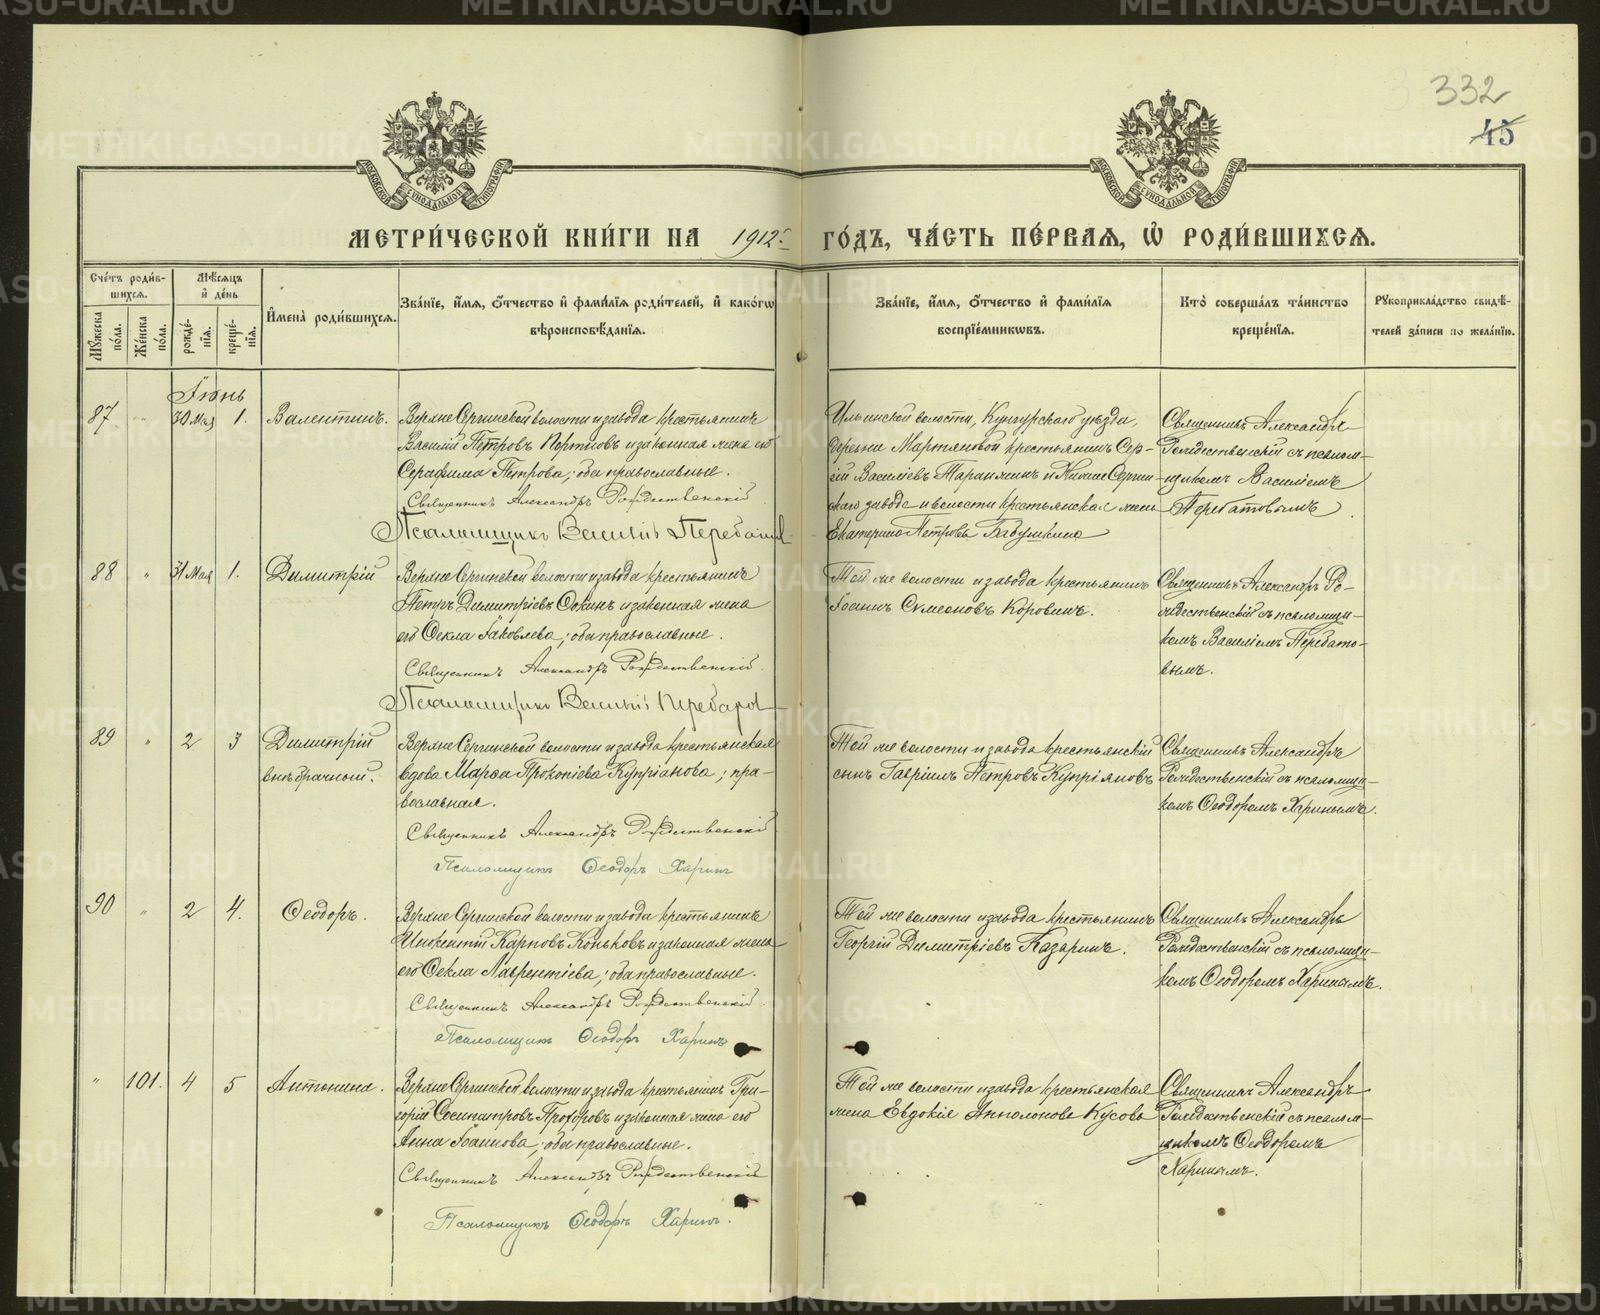 METRIKI.GASO-URAL.RU
332
45
МОСКОВСКОЙ СѴНОДАЛЬНОЙ ТИПОГРАФІИ
МОСКОВСКОЙ СѴНОДАЛЬНОЙ ТИПОГРАФІИ
МЕТРИ́ЧЕСКОЙ КНИ́ГИ НА 1912 ГО́ДЪ, ЧА́СТЬ ПЕ́РВАЯ, Ѡ҆ РОДИ́ВШИХСЯ.
Сче́тъ роди́в-
шихся.
Му́жеска по́ла.
Же́нска по́ла.
Мѣ́сяцъ
и҆ де́нь
рожде́-
нїя.
креще́-
нїя.
И҆мена̀ роди́вшихся.
Зва́нїе, и҆́мя, о҆́тчество и҆ фами́лїя роди́телей, и҆ како́гѡ
вѣроисповѣ́данїя.
Зва́нїе, и҆́мя, о҆́тчество и҆ фами́лїя
воспрїе́мниковъ.
Кто̀ соверша́лъ та́инство
креще́нїя.
Рукоприкла́дство свидѣ́-
телей за́писи по жела́нїю.
Іюнь
87 " 30 Мая 1. Валентинъ.
Верхне Сергинской волости и завода крестьянинъ
Василій Петровъ Портновъ и законная жена его
Серафима Петрова, оба православные.
Священникъ Александръ Рождественскій
Псаломщикъ Василій Перебатов
Ильинской волости, Кунгурского уезда,
деревни Мартяновой крестьянинъ Сер-
гій Васильевъ Таранжинъ и Нижне Сергин-
скаго завода и волости крестьянская жена
Екатерина Петрова Бабушкина
Священникъ Александръ
Рождественскій съ псалом-
щикомъ Василіемъ
Перебатовымъ
88 " 31 Мая 1. Димитрій
Верхне Сергинской волости и завода крестьянинъ
Петръ Димитріевъ Сокинъ и законная жена
его Ѳекла Іаковлева, оба православные.
Священникъ Александръ Рождественскій.
Псаломщикъ Василій Перебатов
Той же волости и завода крестьянинъ
Іоаннъ Сѵмеоновъ Коровинъ.
Священникъ Александръ Ро-
ждественскій съ псаломщи-
комъ Василіемъ Перебато-
вымъ.
89 " 2 3 Димитрій
внѣбрачный.
Верхне Сергинской волости и завода крестьянская
вдова Марѳа Прокопіева Купріанова; пра-
вославная.
Священникъ Александръ Рождественскій
Псаломщикъ Ѳеодоръ Харинъ
Той же волости и завода крестьянскій
сынъ Гавріилъ Петровъ Купріяновъ
Священникъ Александръ
Рождественскій съ псаломщи-
комъ Ѳеодоромъ Харинымъ.
90 " 2 4. Ѳеодоръ.
Верхне Сергинской волости и завода крестьянинъ
Инокентій Карповъ Коньковъ и законная жена
его Ѳекла Лаврентіева, оба православные.
Священникъ Александръ Рождественскій.
Псаломщикъ Ѳеодоръ Харинъ
Той же волости и завода крестьянинъ
Георгій Димитріевъ Казаринъ.
Священникъ Александръ
Рождественскій съ псаломщи-
комъ Ѳеодоромъ Харинымъ.
" 101. 4 5 Антонина.
Верхне Сергинской волости и завода крестьянинъ Гри-
горій Сосипатровъ Прохоровъ и законная жена его
Анна Іоаннова, оба православные.
Священникъ Александръ Рождественскій
Псаломщикъ Ѳеодоръ Харинъ.
Той же волости и завода крестьянская
жена Евдокія Апполонова Кусова
Священникъ Александръ
Рождественскій съ псалом-
щикомъ Ѳеодоромъ
Харинымъ.